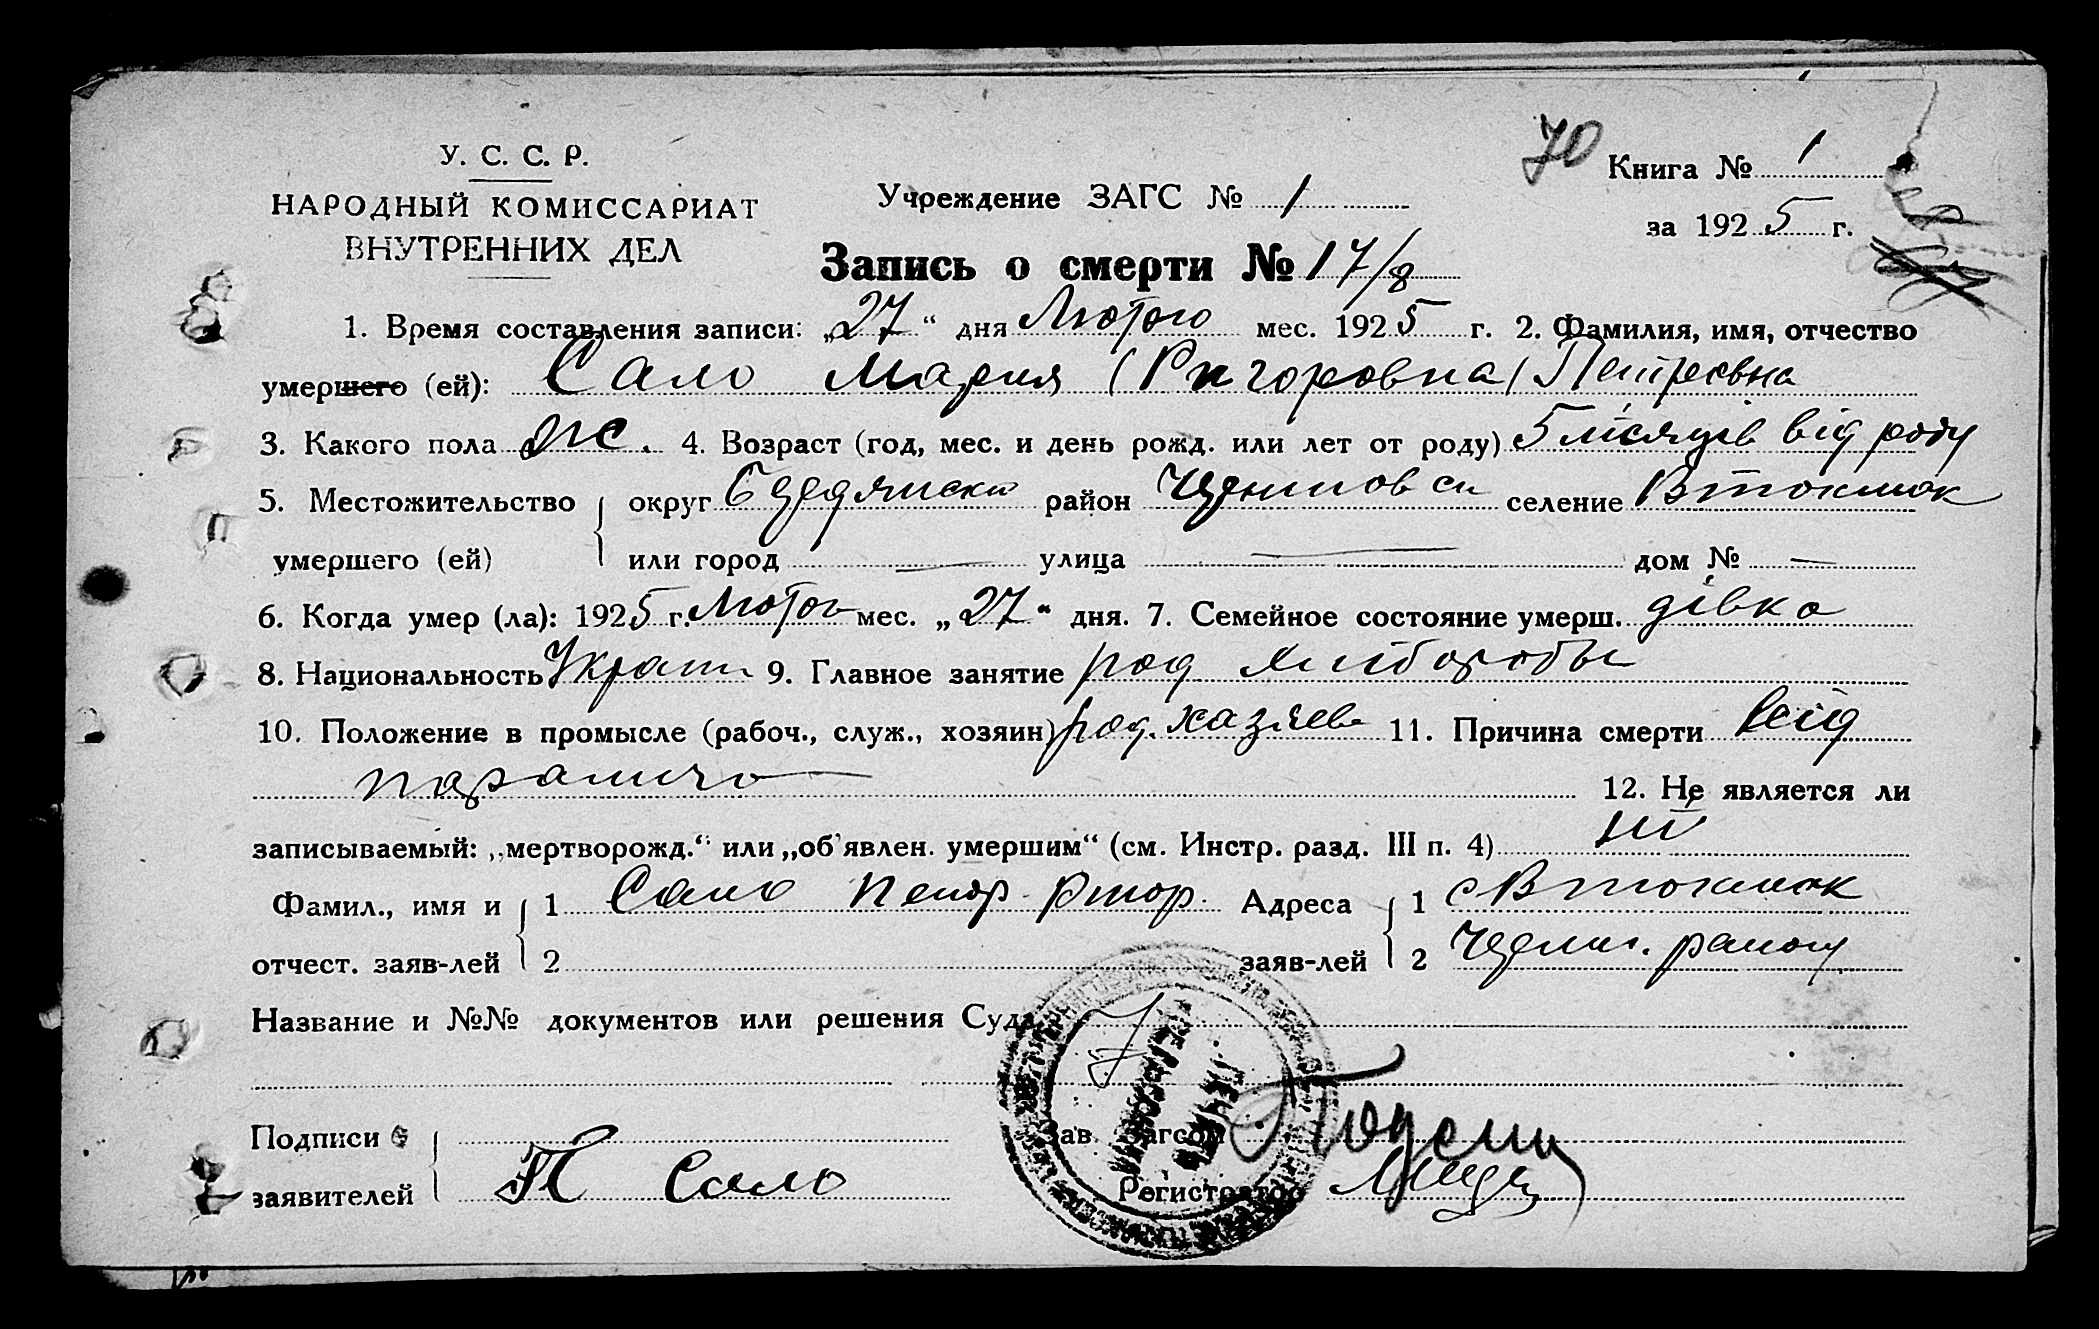 70
Книга № 1
У. С. С. Р.
НАРОДНЫЙ КОМИССАРИАТ
ВНУТРЕННИХ ДЕЛ
Учреждение ЗАГС № 1
за 1925 г.
Запись о смерти № 17/8
1. Время составления записи: „27“ дня Лютого мес. 1925 г. 2. Фамилия, имя, отчество
умершего (ей): Сало Мария (Ригоровна) Петровна
3. Какого пола ж. 4. Возраст (год, мес. и день рожд. или лет от роду) 5 місяців від роду
5. Местожительство округ Бердянски район Черниговск селение Втокмак
умершего (ей) или город — улица — дом № —
6. Когда умер (ла): 1925 г. Лютого мес. „27“ дня. 7. Семейное состояние умерш. дівка
8. Национальность Украин 9. Главное занятие род хлибороби
10. Положение в промысле (рабоч., служ., хозяин) род. хазяев 11. Причина смерти від
паралича 12. Не является ли
записываемый: „мертворожд.“ или „об'явлен. умершим“ (см. Инстр. разд. III п. 4) ні
Фамил., имя и 1 Сало Петр Ригор. Адреса 1 с Втокмак
отчест. заяв-лей 2 заяв-лей 2 Черниг. району
Название и №№ документов или решения Суда
Подписи Зав. Загсом
заявителей П Сало Регистратор
ПЕЧАТЬ